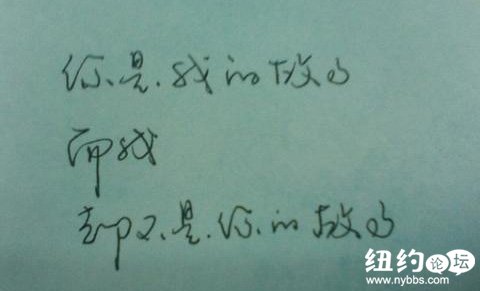 你是.我的故乡
而我
却不是.你.的故乡
纽约论坛
www.nybbs.com